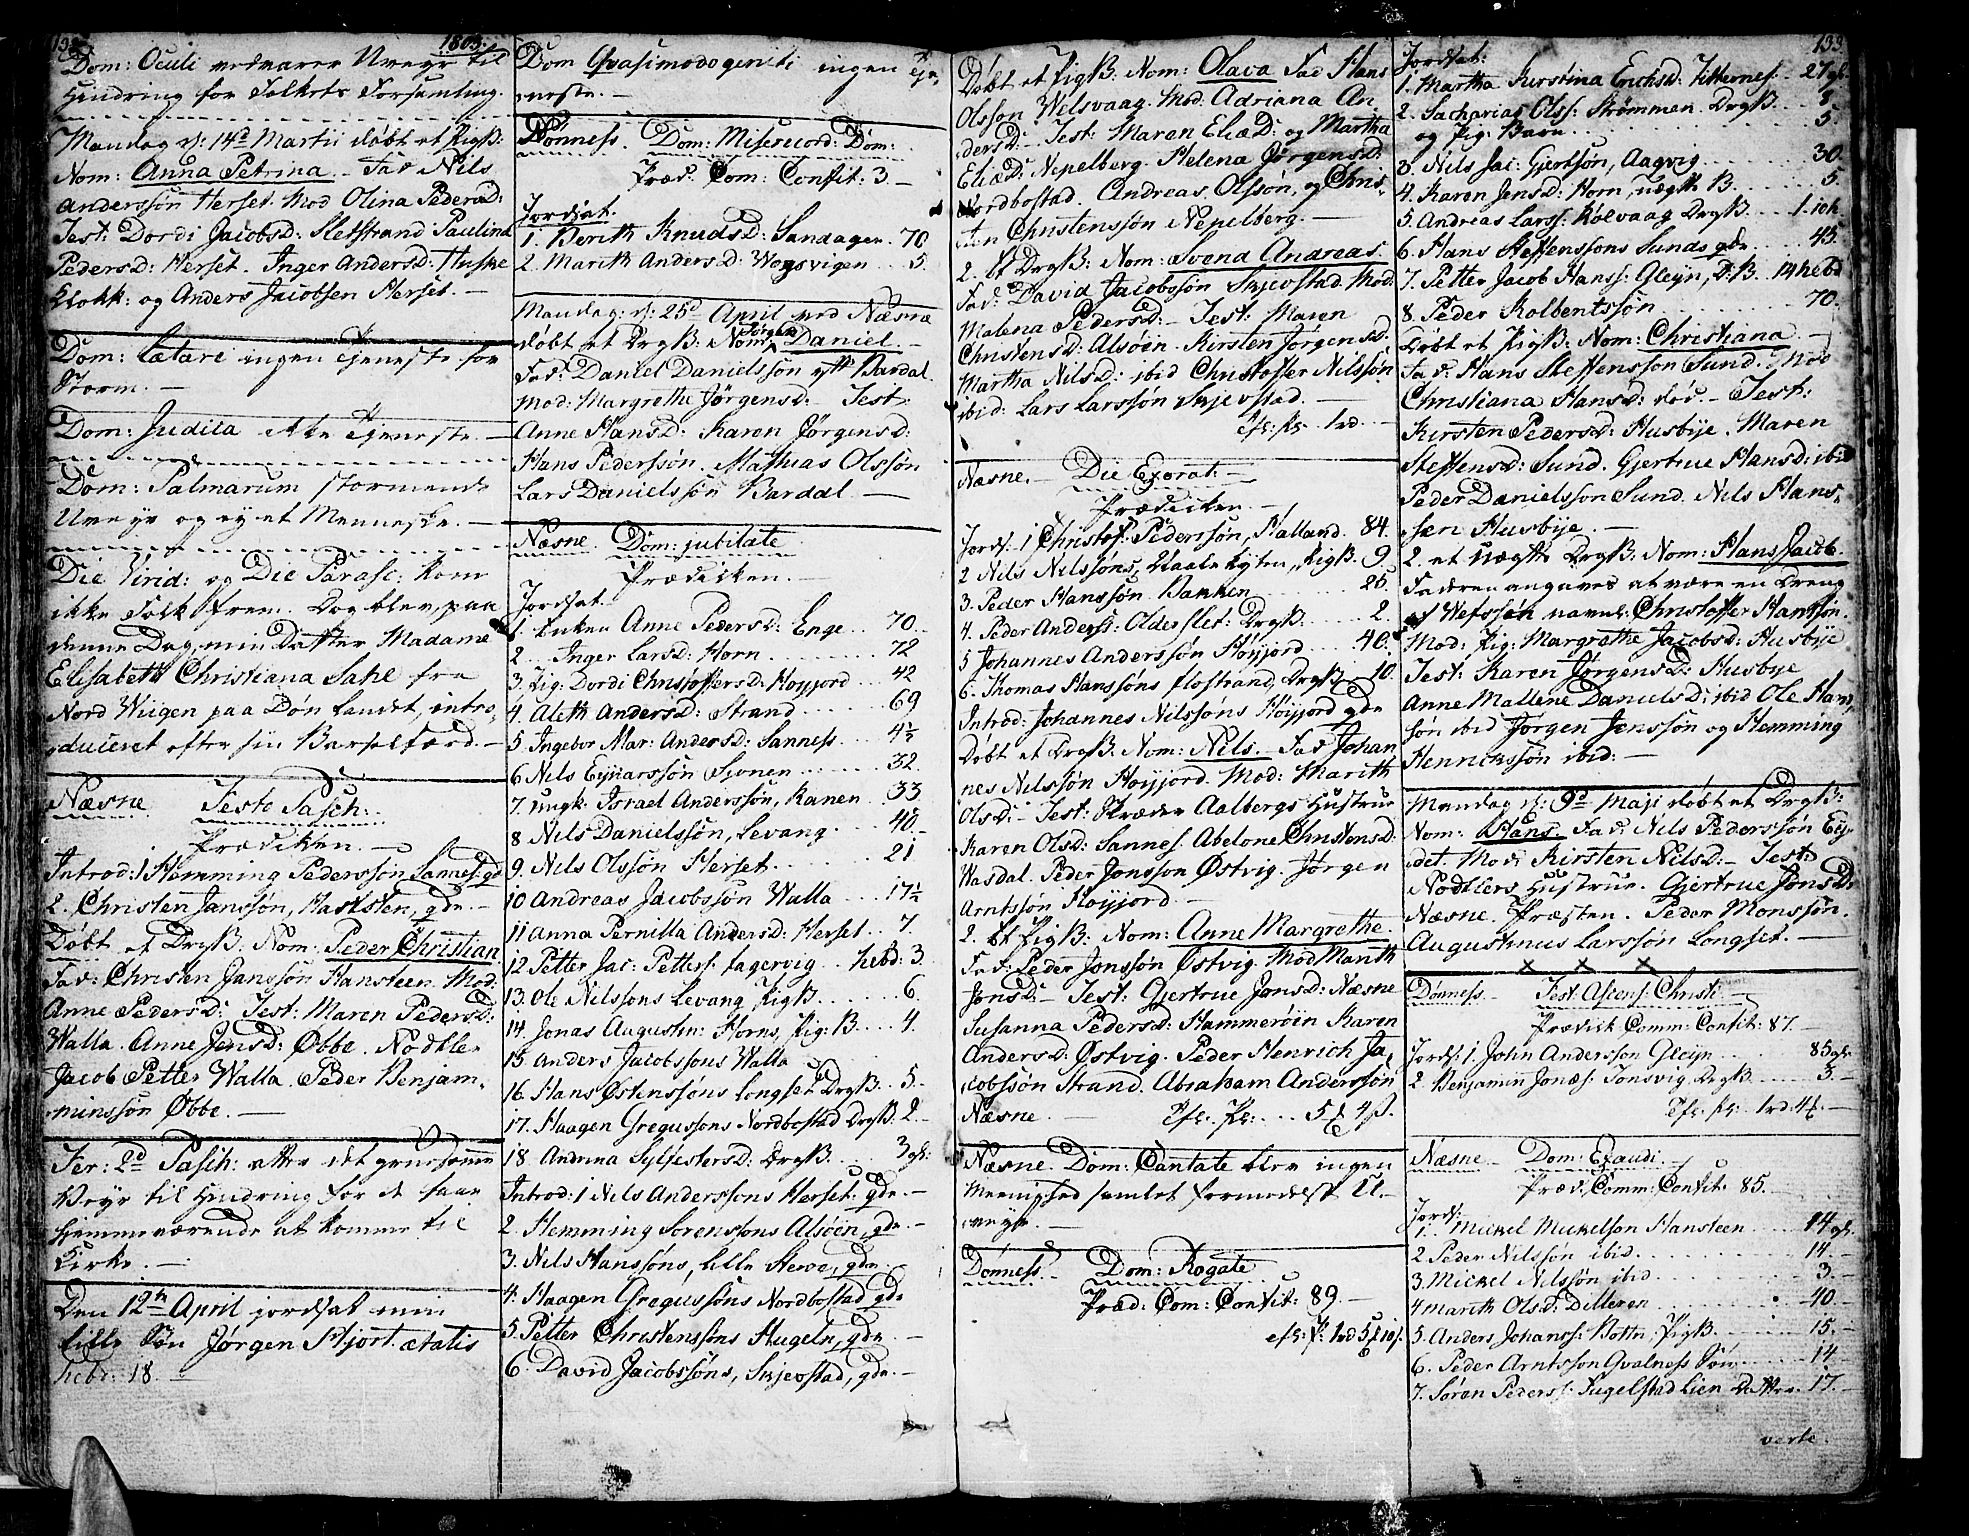 1803.
Dom: Oculi vedvarer Uveyr til
Hindring for Folkets Forsamling.
Mandag d: 14d Martii døbt et PigB:
Nom: Anna Petrina. Fad Nils
Anderssøn Herset. Mod Olina Pedersd:
Test: Dordi JacobsD: Sletstrand Paulina
PedersD: Herset. Inger AndersD: Huske
Klokk: og Anders Jacobsen Herset.
Dom: Lætare ingen Tjeneste for
Storm.
Dom: Judica ikke Tjeneste.
Dom: Palmarum stormende
Uveyr og ey et Menneske.
Die Virid: og Die Parasc: kom
ikke Folk frem. Dog blev, paa
denne Dag, min Datter Madame
Elisabeth Christiana Sahl fra
Nord Wiigen paa Døn landet, intro-
duceret efter sin Barselfærd.
Næsne. Festo Pasch:
Prædiken.
Introd: 1 Hemming Pederssøn Sannes. gde
2. Christen Janssøn, Haststen, gde.
Døbt et DrgB. Nom: Peder Christian
Fad: Christen Janssøn Hansteen. Mod:
Anne PedersD: Test: Maren PedersD:
Walla. Anne JensD: Øbbe. Nodtler
Jacob Petter Walla. Peder Benjam-
minssøn Øbbe.
Fer: 2d Pasch: atter det gruesomme
Veyr til Hindring for de faae
hjemmeværende at komme til
Kirke.
Den 12te April jordsat min
lille Søn Jørgen Hjort. ætatis
hebd: 18.
Dom Qvasimodogeniti ingen Tje-
neste.
Dönness. Dom: Misericord: Dom:
Præd: Com: Confit: 3.
Jordsat.
1. Berith KnudsD: Sandagen. 70
2. Marith AndersD: Wogsvigen 5.
Mandag: d: 25d April ved Næsne
døbt et DrgB: Nom: Jørgen Daniel.
Fad: Daniel Danielssøn ytt Bardal.
Mod: Margrethe JørgensD: Test:
Anne HansD: Karen JørgensD:
Hans Pederssøn. Mathias Olssøn
Lars Danielssøn Bardal.
Næsne. Dom: jubilate
Prædiken.
Jordsat.
1. Enken Anne PedersD: Enge 70.
2. Inger LarsD: Horn 72
3. Pig: Dordi ChristoffersD: Høyjord 42
4. Aleth AndersD: Strand 69
5. Ingebor Mar: AndersD: Sanness 4½
6 Nils Eynarssøn Sjonen 32.
7. Ungk: Israel Anderssøn, Ranen 33
8 Nils Danielssøn, Levang. 40.
9. Nils Olssøn Herset. 21
10 Andreas Jacobssøn Walla 17½
11 Anna Pernilla AndersD: Herset. 7.
12 Petter Jac: Petters: Fagervig hebd: 3.
13. Ole Nilssøns Levang PigB. 6.
14. Jonas Augustin: Horns, Pig: B. 4.
15. Anders Jacobssons Walla
16. Hans Østenssøns Longset DrgB. 5.
17. Haagen Gregussøns Nordbostad DrgB. 2.
18. Andrina SylfestersD: DrgB. 3
Introd: 1 Nils Anderssøns Herset. gde.
2. Hemming Sørenssøns Alsøen, gde.
3. Nils Hanssøns, Lille Herøe, gde.
4. Haagen Gregussøns Nordbostad gde
5. Petter Christenssøns Hugeln, gde.
6. David Jacobssøns, Skjevstad, gde.
Døbt et PigB: Nom: Olava Fad Hans
Olsson Welsvaag. Mod: Adriana An-
dersD: Test: Maren EliæD: og Martha
EliæD: Nepelberg. Helena JørgensD:
Nordbostad. Andreas Olssøn, og Chris-
ten Christenssøn Nepelberg.
2. Et DrgB: Nom: Svend Andreas
Fad: David Jacobssøn Skjevstad. Mod.
Malena PedersD: Test: Maren
ChristensD: Alsøen. Kirsten JørgensD:
Martha NilsD: ibid Christoffer Nilssøn
ibid: Lars Larssøn Skjevstad.
Næsne. Die Exorat:
Prædiken.
Jords: 1 Christof: Pederssøn, Halland. 84.
2 Nils Nilssøns, PigB. 9.
3. Peder Hanssøn Bakken 25.
4. Peder Anders: Olderslet: DrgB. 2.
5 Johannes Anderssøn Høyjord 40.
6. Thomas Hanssøns Flostrand, DrgB. 10.
Introd: Johannes Nilssøns Høyjord gde
Døbt et DrgB. Nom: Nils. Fad Johan
nes Nilssøn Høyjord. Mod: Marith
OlsD: Test: Skræder Aalbergs Hustrue
Karen OlsD: Sannes. Abelone ChristensD:
Wasdal. Peder Jonsson Østvig. Jørgen
Arntssøn Høyjord.
2. Et PigB: Nom: Anne Margrethe.
Fad: Peder Jonssøn Østvig. Mod Marith
JonsD: Test: Gjertrue JonsD: Næsne
Susanna PedersD: Hammerøen Karen
AndersD: Østvig. Peder Henrich Ja-
cobssøn Strand. Abraham Anderssøn
Næsne.
Næsne. Dom: Cantate blev ingen
Meenighed samlet formedelst U-
veyr.
Dönness. Dom: Rogate
Præd: Com: Confit: 89.
133
Jordsat:
1. Martha Kirstina ErichsD: Titternes. 27
2. Zacharias Ols: Strømmen DrgB. 8.
og Pig: Barn 5.
3. Nils Jac: Gjertsøn, Aagvig 30.
4. Karen JensD: Horn, uægte B. 5.
5. Andreas Larss: Kølvaag DrgB.
6. Hans Steffenssøns Sunds gde. 45.
7. Petter Jacob Hanss: Gleyn, D: B. 14 hebd
8. Peder Kolbentssøn 70.
Døbt et PigB. Nom: Christiana
Fad: Hans Steffenssøn Sund. Mod
Christiana HansD: død. Test:
Kirsten PedersD: Husbye. Maren
SteffensD: Sund. Gjertrue HansD: ibid
Peder Danielsson Sund. Nils Hans-
søn Husbye.
2. et uægte DrgB: Nom: Hans Jacob.
Faderen angaves at være en Dreng
af Wefssøn navnl: Christoffer Hanssøn.
Mod: Pig: Margrethe JacobsD: Husbye
Test: Karen JørgensD: Husbye
Anne Mallene DanielsD: ibid Ole Hans-
søn ibid Jørgen Jenssøn og Hemming
Henricssøn ibid:
Mandag d: 9d Maji døbt et DrgB:
Nom: Hans. Fad: Nils Pederssøn Ey-
det. Mod: Kirsten NilsD: Test:
Nodtlers Hustrue. Gjertrue JonsD:
Næsne. Præsten. Peder Monssøn.
Augustinus Larssøn Longset.
x x x
Dønness. Fest: Ascens: Christi.
Prædik Comm: Confit: 87.
Jords: 1. John Andersson Gleyn 85
2 Benjamin Jonæs: Tonsvig DrgB 3.
Næsne. Dom: Exaudi.
Præd: Comm: Confit: 85.
Jords:
1. Mickel Mickelson Hansteen 14
2 Peder Nilssøn ibid. 14.
3. Mickel Nilssøn ibid 3.
4 Marith OlsD: Dilleren 40.
5. Anders Johanss: Botn PigB 15.
6. Peder Arntssøn Qvalness Søn 14
7. Søren Peders: Fugelstad Lien Datter. 17.
verte.